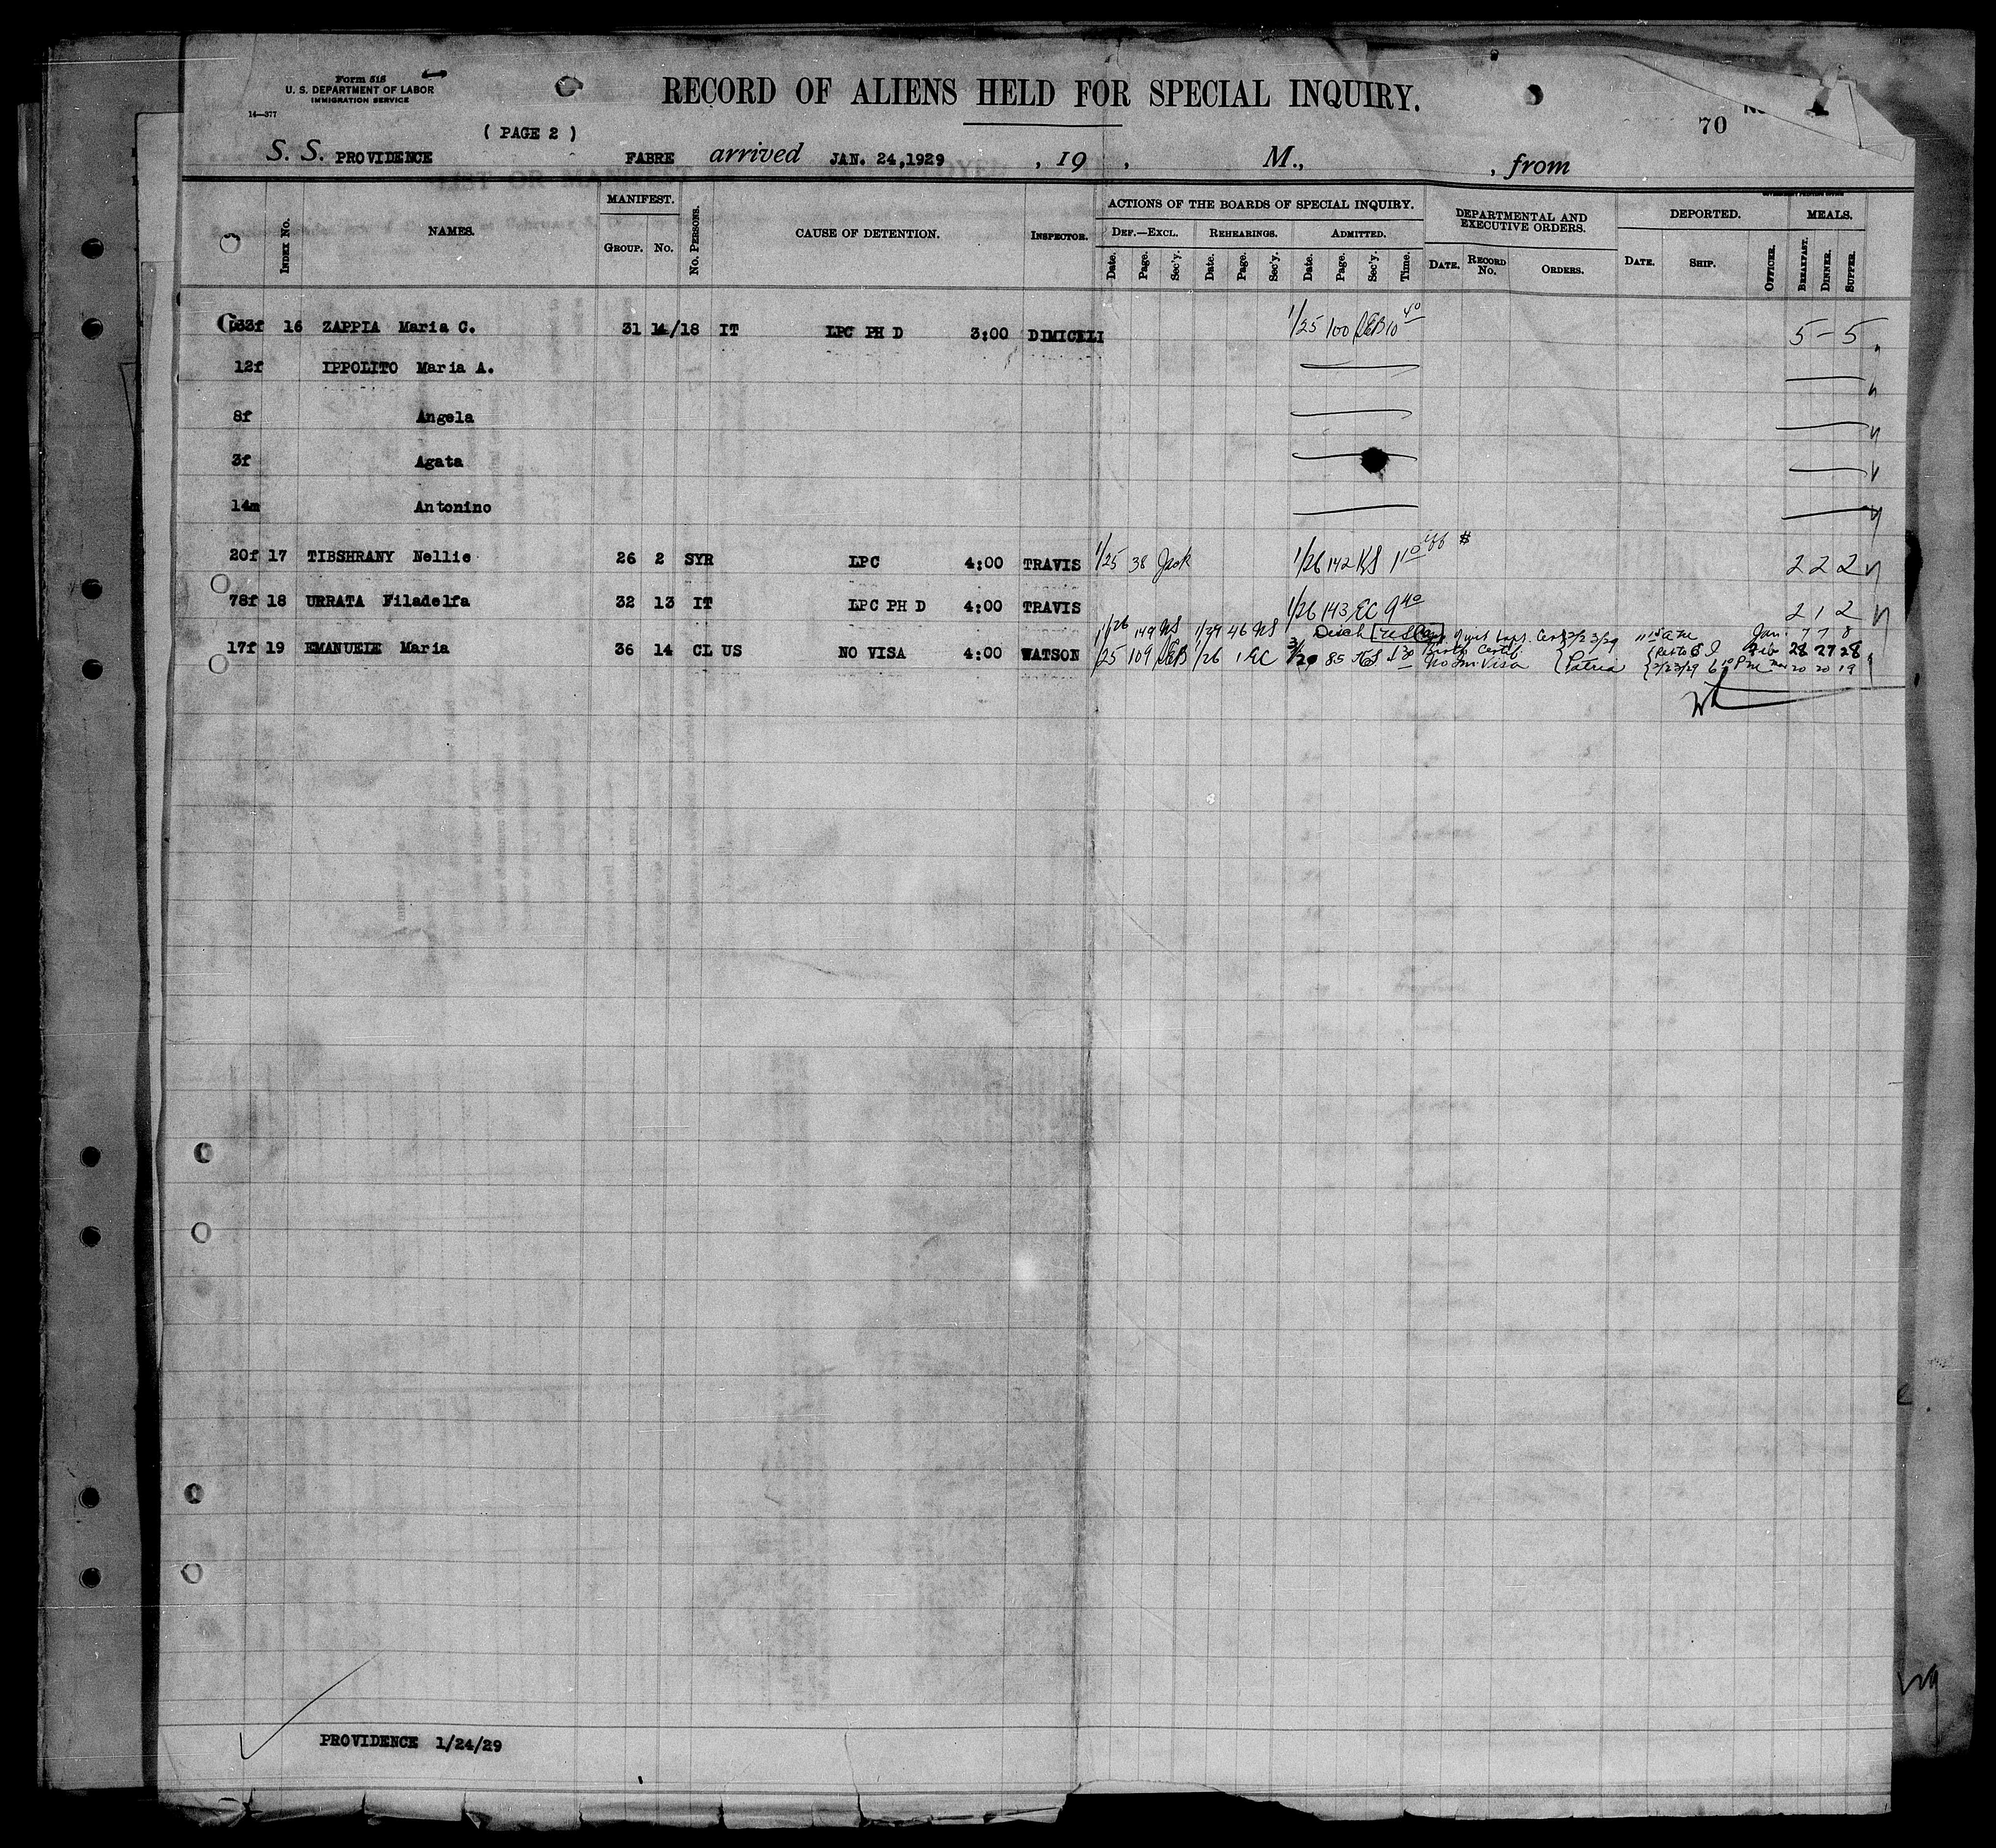 Form 515
U. S. DEPARTMENT OF LABOR
IMMIGRATION SERVICE
14—377
RECORD OF ALIENS HELD FOR SPECIAL INQUIRY.
70
( PAGE 2 )
S. S. PROVIDENCE FABRE arrived JAN. 24,1929 , 19 , M., , from
Index No. NAMES. MANIFEST. Group. No. No. Persons. CAUSE OF DETENTION. Inspector. ACTIONS OF THE BOARDS OF SPECIAL INQUIRY. Def.—Excl. Date. Page. Sec'y. Rehearings. Date. Page. Sec'y. Admitted. Date. Page. Sec'y. Time. DEPARTMENTAL AND EXECUTIVE ORDERS. Date. Record No. Orders. DEPORTED. Date. Ship. Officer. MEALS. Breakfast. Dinner. Supper.
33f 16 ZAPPIA Maria C. 31 14/18 IT LPC PH D 3:00 DIMICELI 1/25 100 REB 10 40 5 – 5
12f IPPOLITO Maria A.
8f Angela
3f Agata
14m Antonino
20f 17 TIBSHRANY Nellie 26 2 SYR LPC 4:00 TRAVIS 1/25 38 1/26 142 KS 1 10 2 2 2
78f 18 URRATA Filadelfa 32 13 IT LPC PH D 4:00 TRAVIS 1/26 143 EC 9 40 2 1 2
1/26 149 1/29 46 3/23/29 Jan. 7 7 8
17f 19 EMANUELE Maria 36 14 CL US NO VISA 4:00 WATSON 25 109 REB 1/26 1 EC 85 No Im. Visa Patria Feb 28 27 28
3/23/29 6 10 PM Mar 20 20 19
PROVIDENCE 1/24/29